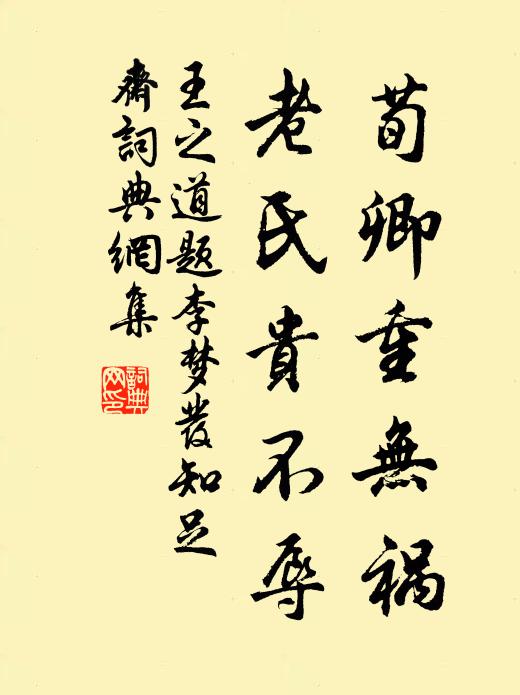 荀卿重無禍
老氏貴不辱
王之道題李梦發知足
齋詞典網集
詞典
网印